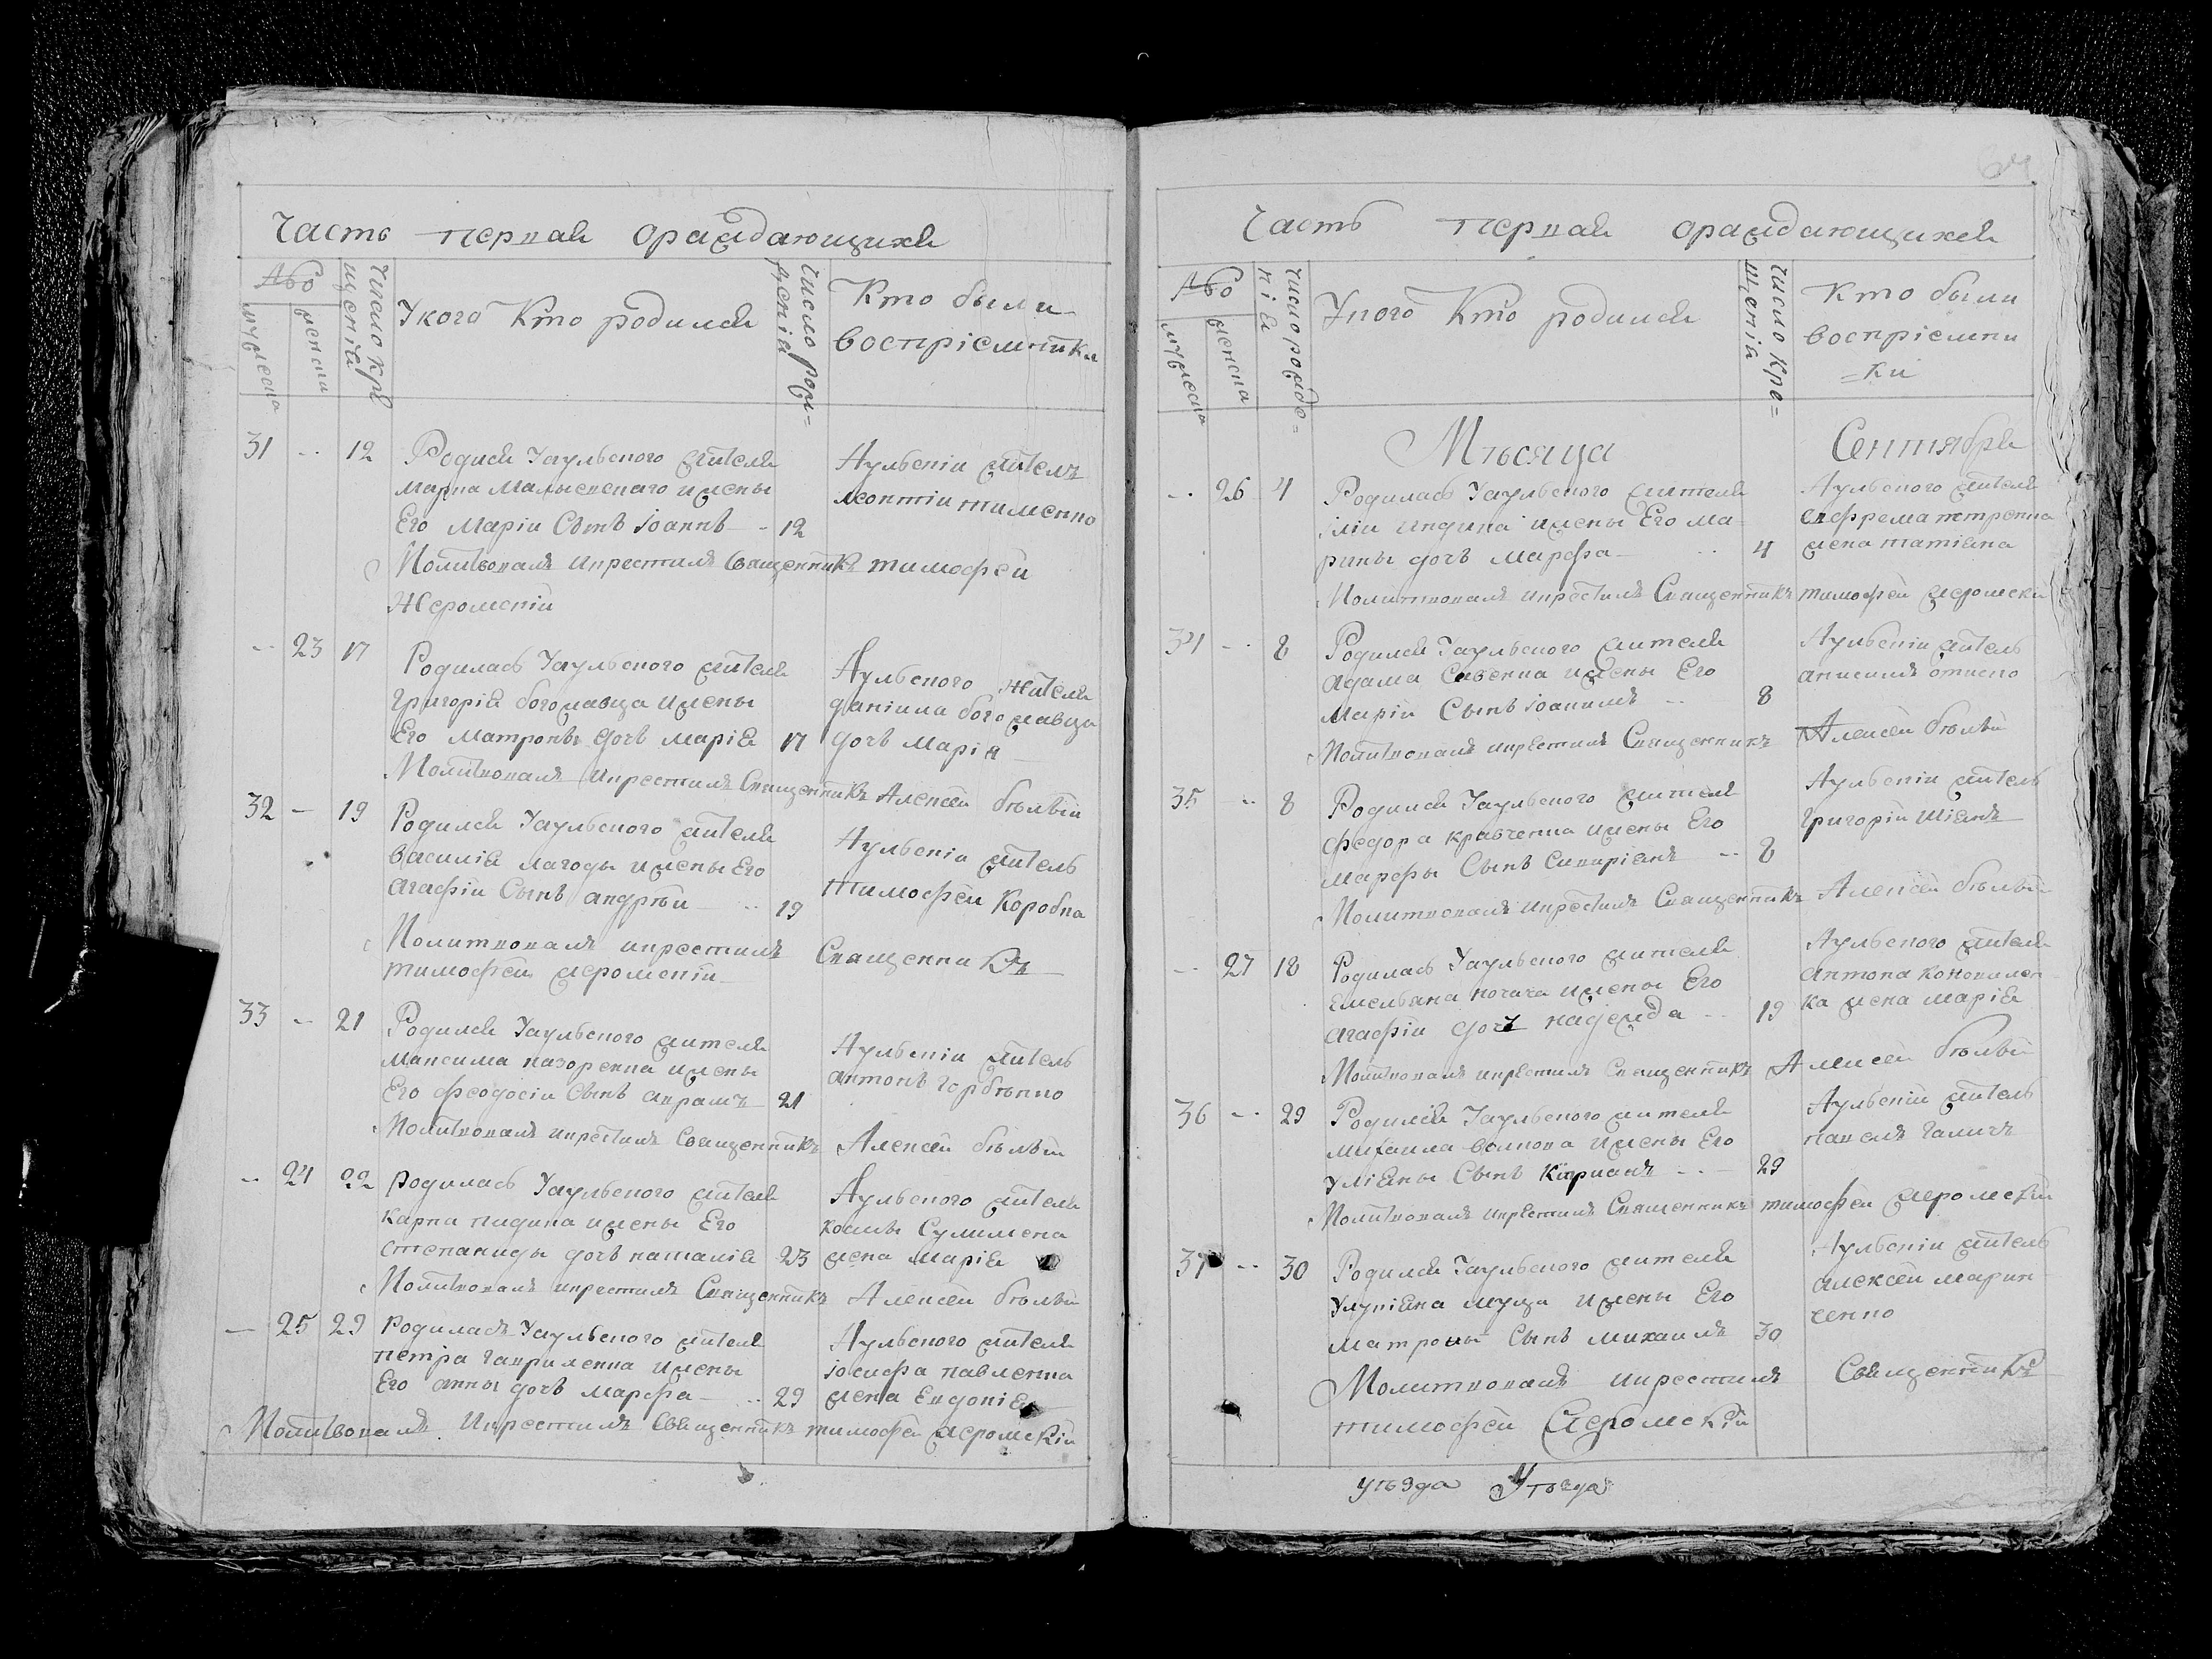 Часть первая ораждающихся
№о
мужеска
женска
число кре
щенія
Укого Кто родился
число рож=
дѣнія
Кто были
восприемники
31 -- 12 Родися Уаульского жителя
Марка Малыс его ижены
Его Маріи Сынъ Іоаннъ - 12
Аульскій жителъ
леонтіи тименко
Молитвовалъ икрестилъ Священникъ тимофей
Жеромскій
-- 23 17 Родилась Уаульского жителя
Григорія богомавца ижены
Его Матроны дочь Марія 17
Аульского жителя
даніила богомавца
дочь Марія
Молитвовалъ икрестилъ Священникъ Алексѣй бѣлый
32 - 19 Родился Уаульского жителя
василія лагоды ижены Его
агафіи Сынъ андрѣи -- 19
Аульскій житель
тимофей Коробка
Молитвовалъ икрестилъ Священникъ
тимофѣй жеромскій
33 -- 21 Родился Уаульского жителя
максима назоренка ижены
Его феодосіи Сынъ аврамъ 21
Аульскій житель
антонъ горбѣнко
Молитвовалъ икрестилъ Священникъ Алексѣй бѣлый
-- 24 22 родилась Уаульского жителя
карпа индика ижены Его
степаниды дочь наталія 23
Аульского жителя
космы Сулимена
жена Марія
Молитвовалъ икрестилъ Священникъ Алексѣй бѣлый
-- 25 29 родилась Уаульского жителя
петра гавриленка ижены
Его анны дочь марфа -- 29
Аульского жителя
іосифа павленка
жена Евдокія
Молитвовалъ икрестилъ Священникъ тимофей жеромскій
Часть первая ораждающихся
№о
мужеска
женска
число рожде=
нія
Укого Кто родился
число кре=
щенія
Кто были
восприемни
=ки
Мѣсяца Сентября
-- 26 4 Родилась Уаульского жителя
іліи индика ижены Его ма-
рины дочь марфа -- 4
Аульского жителя
ефрема петренка
жена татіяна
Молитвовалъ икрестилъ Священникъ тимофей жеромскій
34 -- 8 Родился Уаульского жителя
адама Савенка ижены Его
Маріи Сынъ іоакимъ -- 8
Аульскій житель
анисимъ
Молитвовалъ икрестилъ Священникъ Алексѣй бѣлый
35 -- 8 Родился Уаульского жителя
федора кравченка ижены Его
марфы Сынъ Сипиріянъ -- 8
Аульскій житель
григорій Шіянъ
Молитвовалъ икрестилъ Священникъ Алексѣй бѣлый
-- 27 18 Родилась Уаульского жителя
Емельяна ижены Его
агафіи дочь надежда -- 19
Аульского жителя
антона коновален
ка жена марія
Молитвовалъ икрестилъ Священникъ Алексѣй бѣлый
36 -- 29 Родился Уаульского жителя
михаила волкова ижены Его
уліяны Сынъ Киріакъ -- 29
Аульскій житель
павелъ галичъ
Молитвовалъ икрестилъ Священникъ тимофей жеромскій
37 -- 30 Родился Уаульского жителя
Улукіяна муца ижены Его
матроны Сынъ михаилъ 30
Аульскій житель
алексѣй марин
ченко
Молитвовалъ икрестилъ Священникъ
тимофей жеромскій
уѣзда Уѣзда